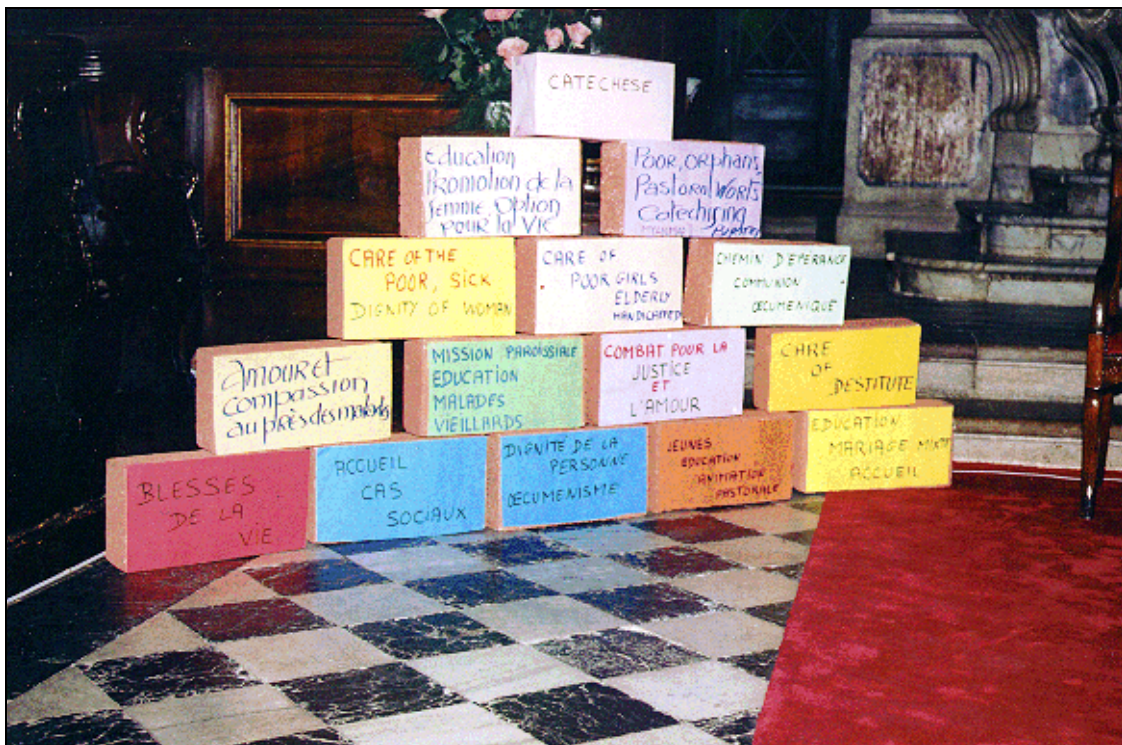 CATECHESE
Education
Promotion de la
femme, Option
pour la Vie
Poor, Orphans,
Pastoral Works
Catechising
MYANMAR
CARE OF THE
POOR, SICK
DIGNITY OF WOMAN
CARE OF
POOR GIRLS
ELDERLY
HANDICAPED
CHEMIN D'EPERANCE
COMMUNION
ŒCUMENIQUE
Amour et
compassion
auprès des malades
MISSION PAROISSIALE
EDUCATION
MALADES
VIEILLARDS
COMBAT POUR LA
JUSTICE
ET
L'AMOUR
CARE
OF
DESTITUTE
BLESSES
DE LA
VIE
ACCUEIL
CAS
SOCIAUX
DIGNITÉ DE LA
PERSONNE
ŒCUMENISME
JEUNES
EDUCATION
ANIMATION
PASTORALE
EDUCATION
MARIAGE MIXTE
ACCUEIL